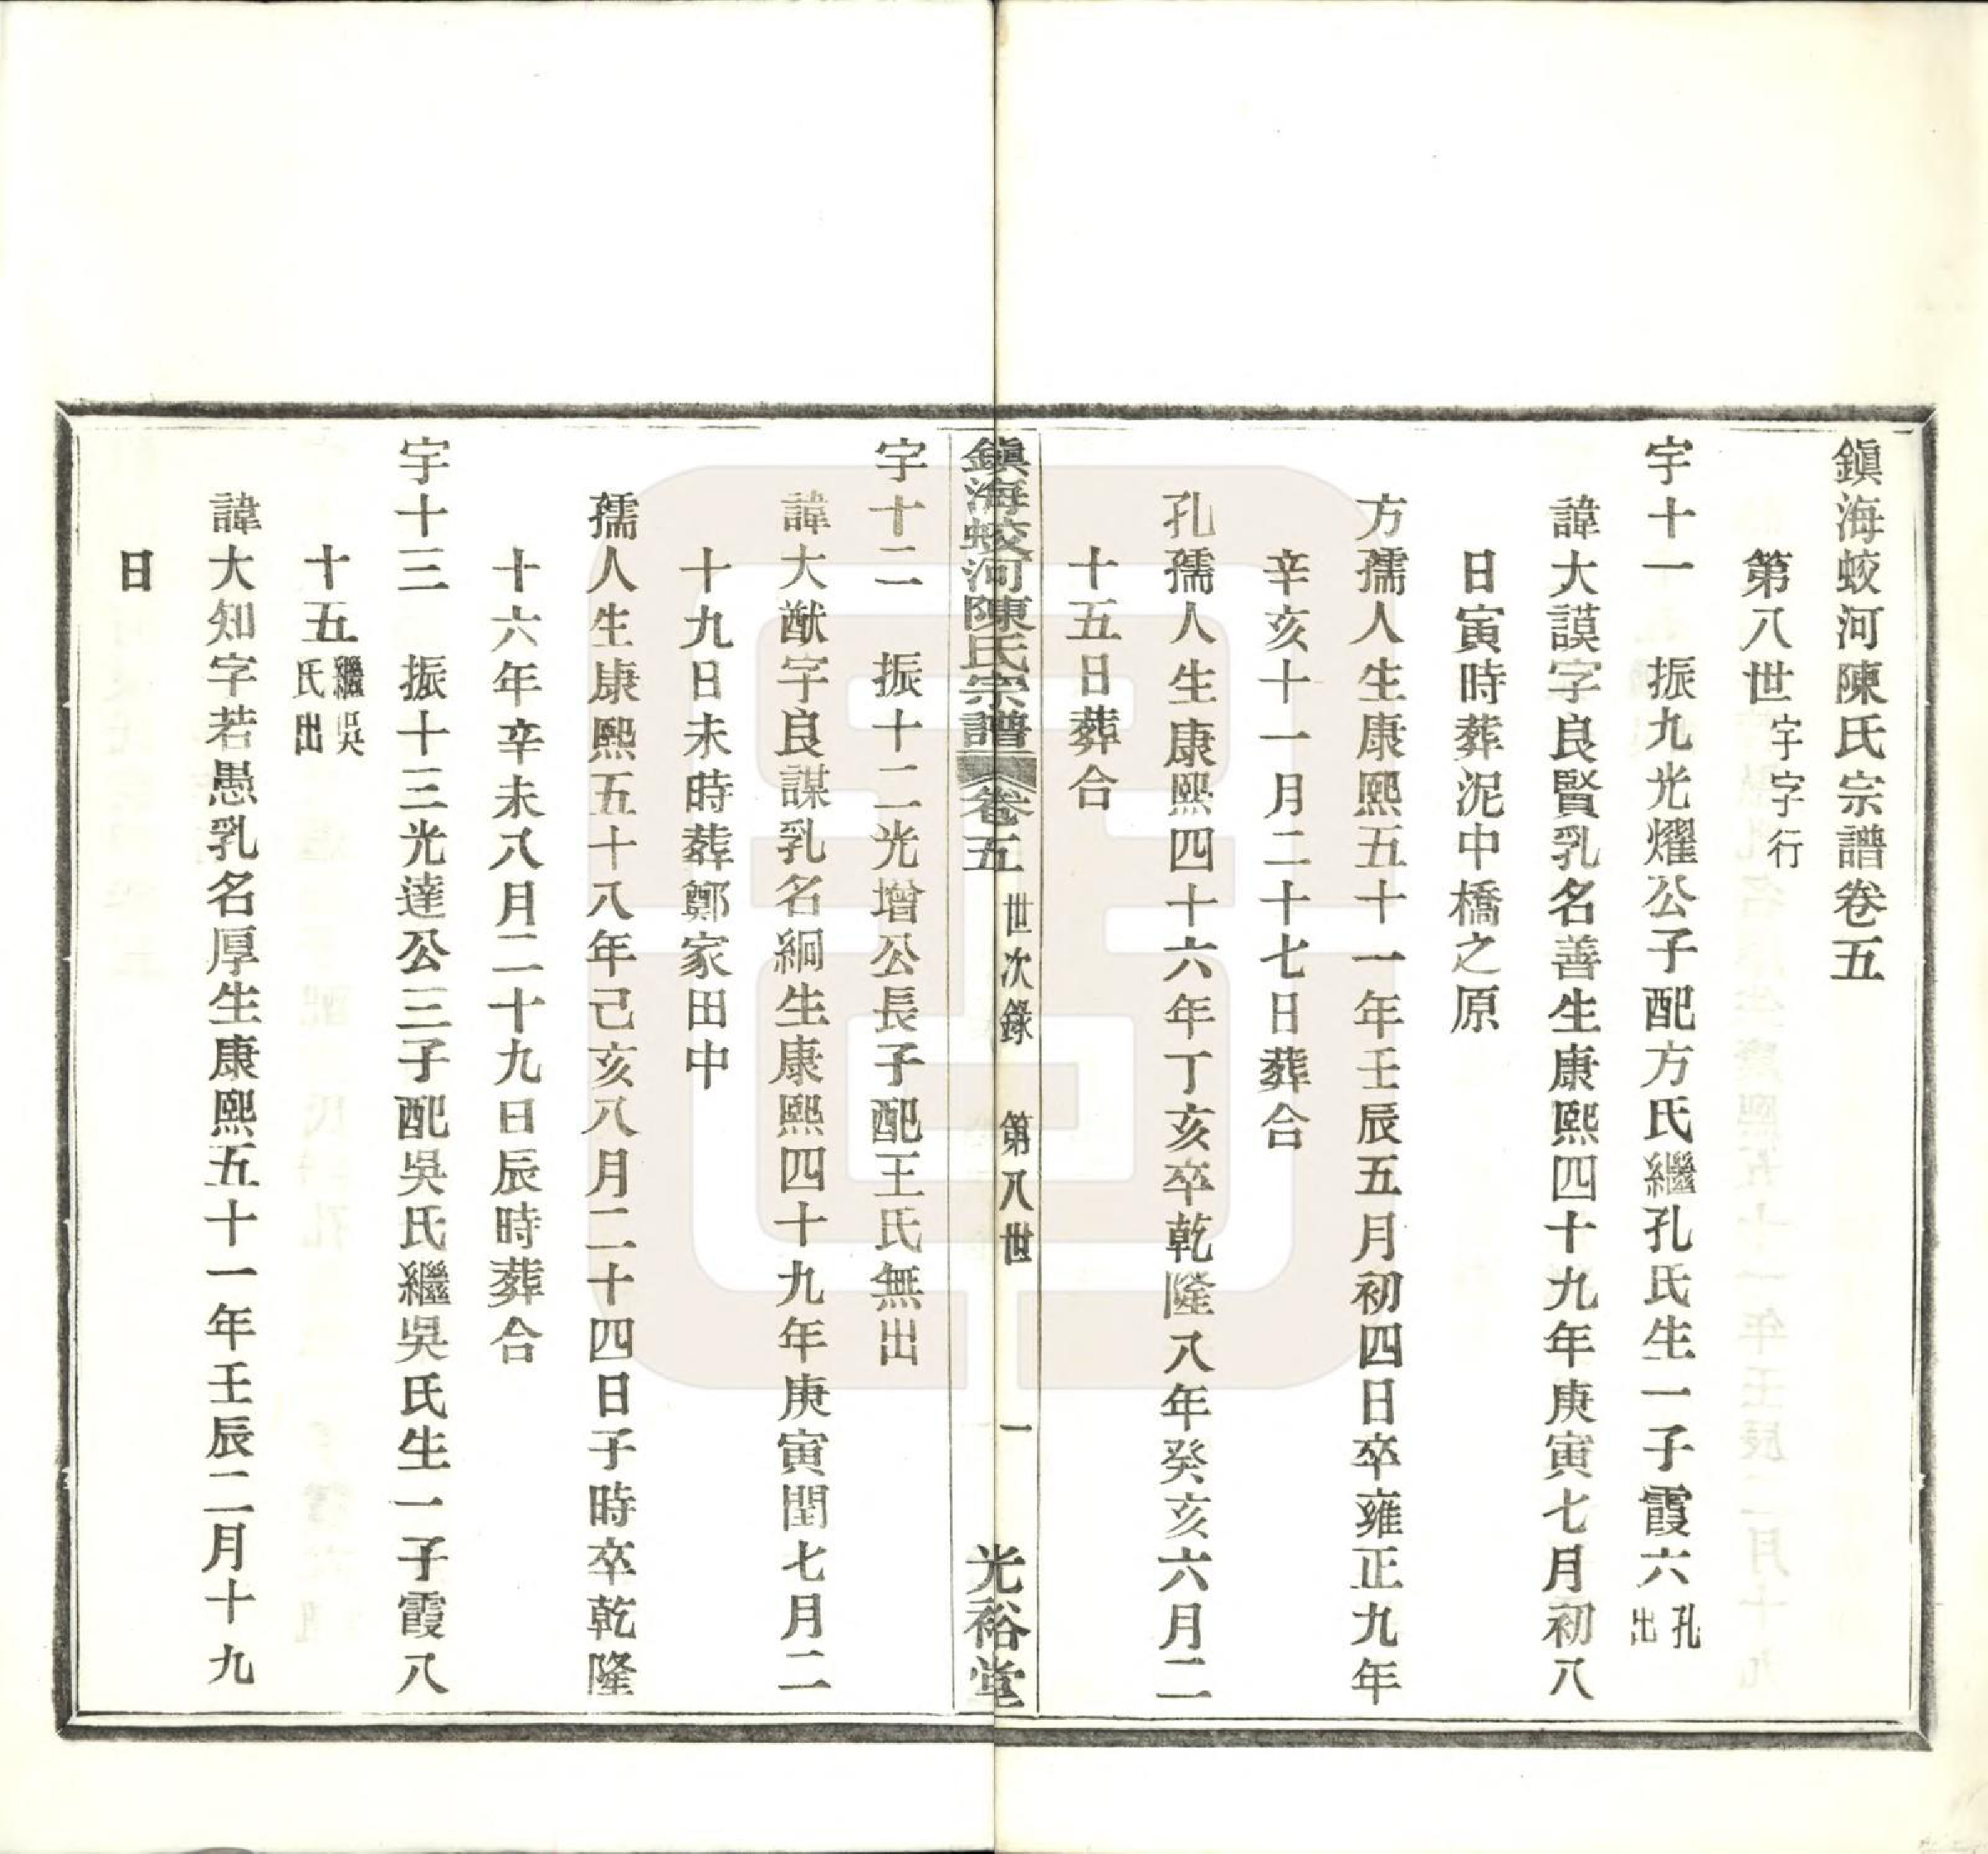 鎮海蛟河陳氏宗譜卷五
第八世宇字行
宇十一　振九光燿公子配方氏繼孔氏生一子霞六孔出
諱大謨字良賢乳名善生康熙四十九年庚寅七月初八
日寅時葬泥中橋之原
方孺人生康熙五十一年壬辰五月初四日卒雍正九年
辛亥十一月二十七日葬合
孔孺人生康熙四十六年丁亥卒乾隆八年癸亥六月二
十五日葬合
鎮海蛟河陳氏宗譜　卷五　世次錄　第八世　一　光裕堂
宇十二　振十二光增公長子配王氏無出
諱大猷字良謀乳名絅生康熙四十九年庚寅閏七月二
十九日未時葬鄭家田中
孺人生康熙五十八年己亥八月二十四日子時卒乾隆
十六年辛未八月二十九日辰時葬合
宇十三　振十三光達公三子配吳氏繼吳氏生一子霞八
十五繼吳氏出
諱大知字若愚乳名厚生康熙五十一年壬辰二月十九
日